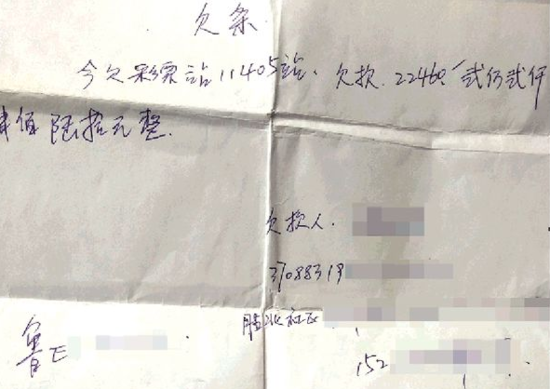 欠条
今欠彩票站11405站、欠款.22460.贰万贰仟
肆佰陆拾元整.
欠款人.
37088319
社区
鲁E
152